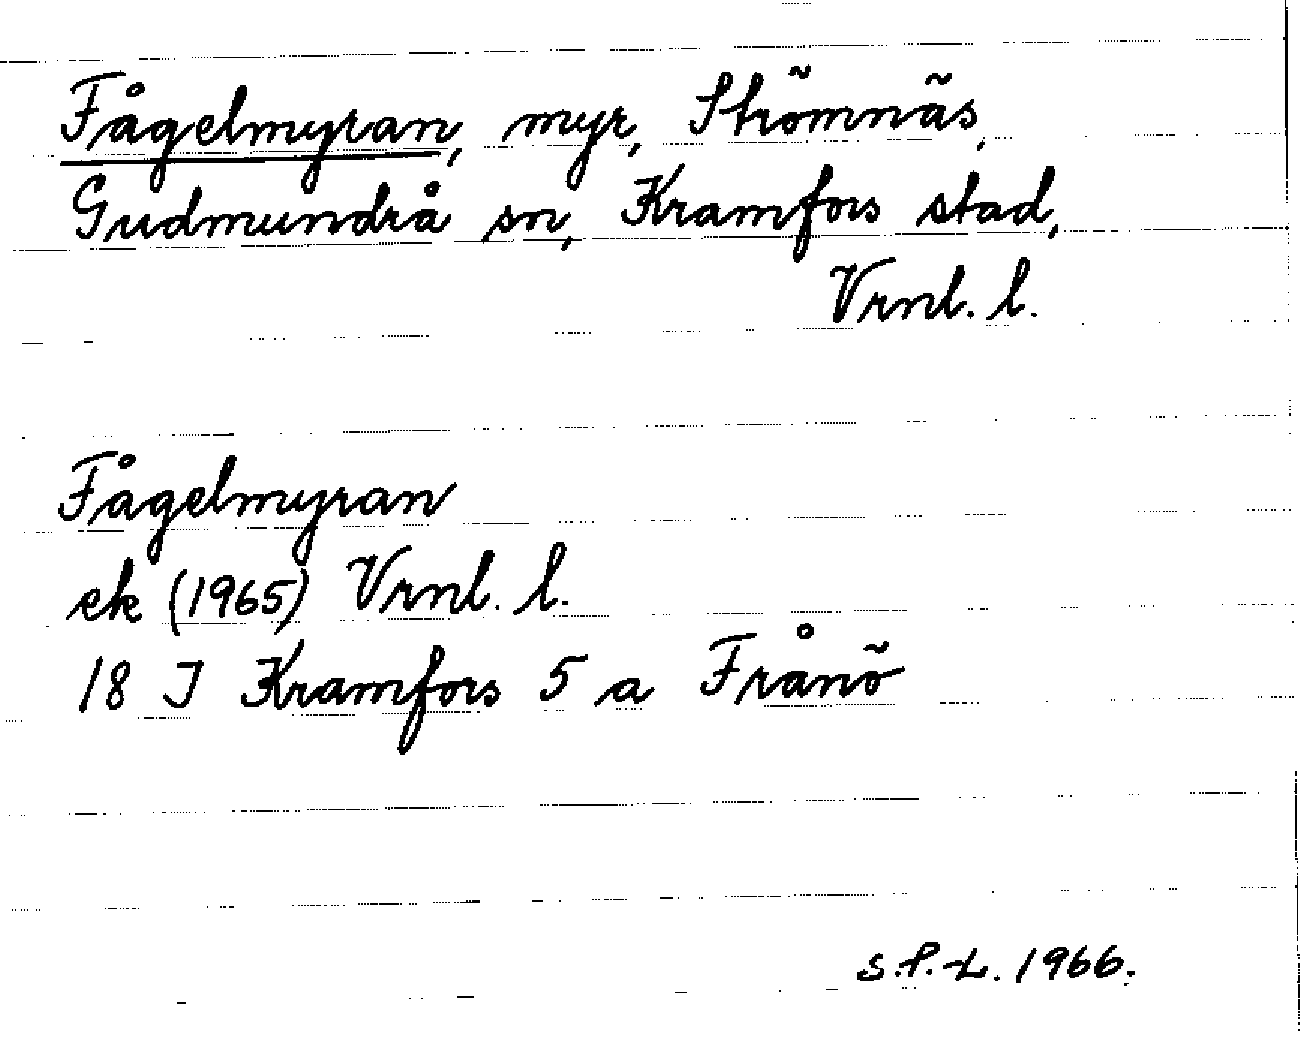 Fågelmyran, myr, Strömnäs,
Gudmundrå sn, Kramfors stad,
Vrnl. l.
Fågelmyran
ek (1965) Vrnl. l.
18 I Kramfors 5 a Frånö
S.P.-L. 1966.